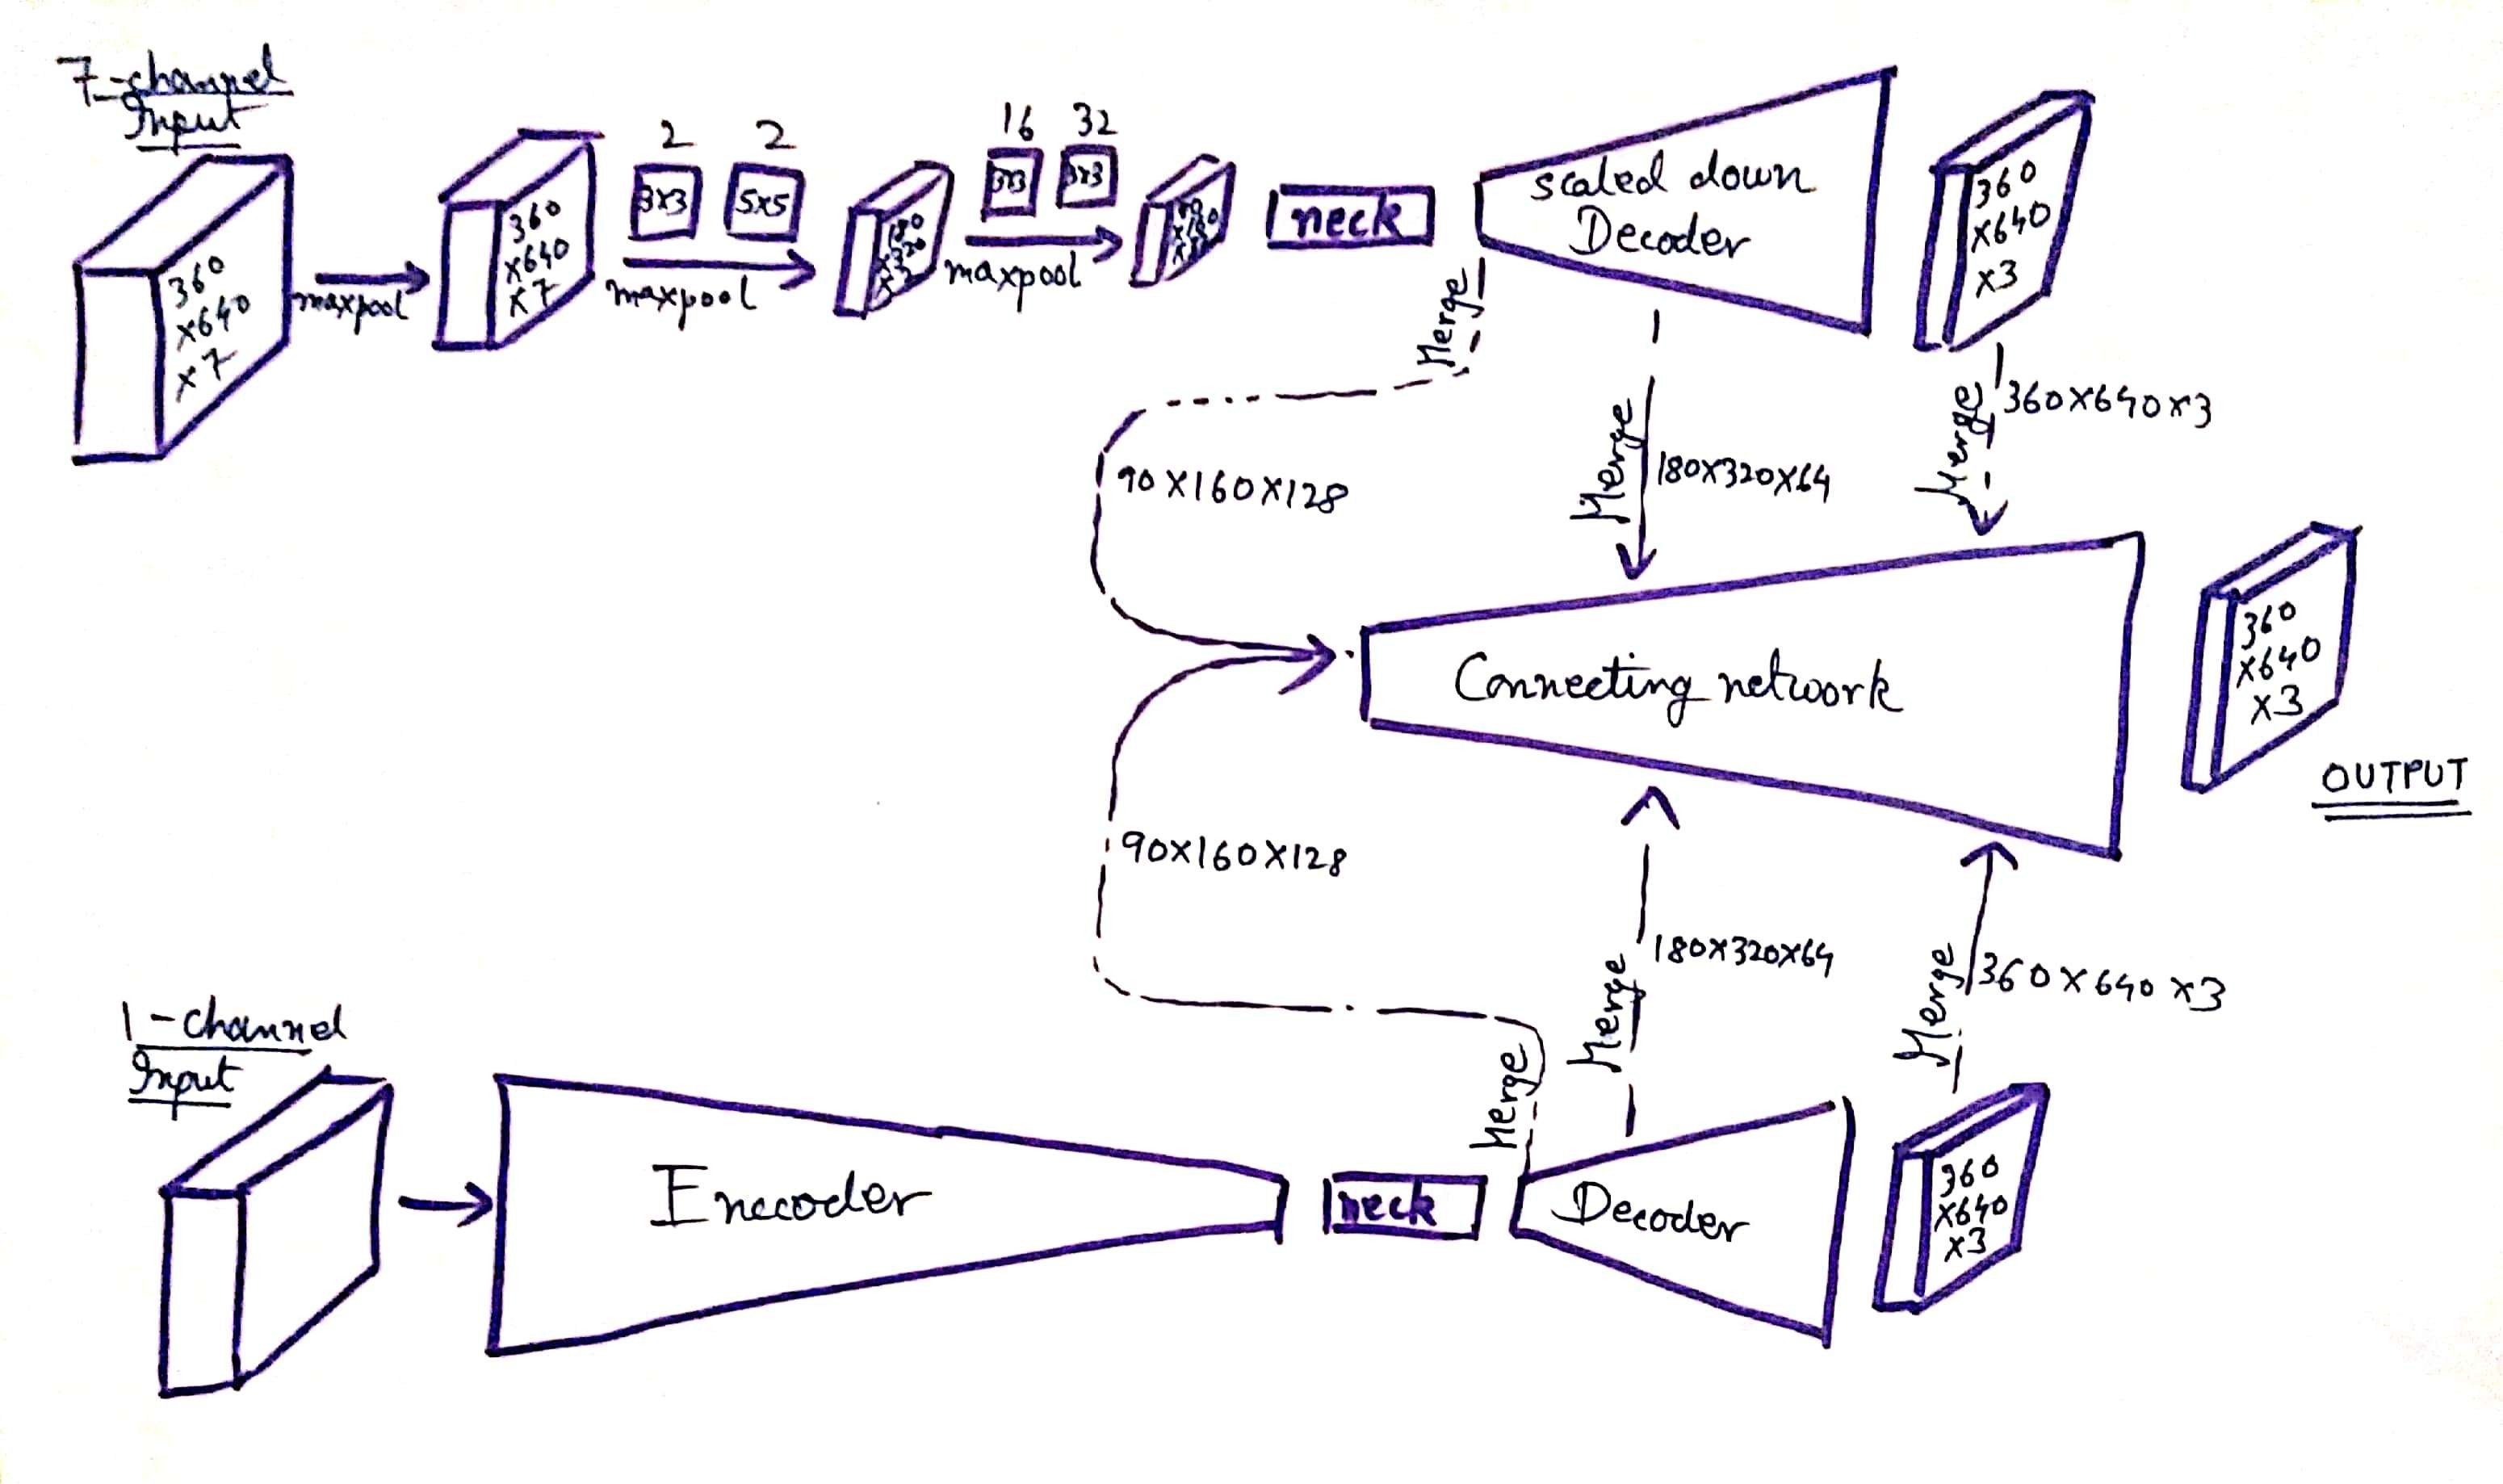 7-channel
Input
360
x640
x7
maxpool
360
x640
x7
2 2
3x3 5x5
maxpool
180
x320
16 32
3x3 3x3
maxpool
neck
scaled down
Decoder
360
x640
x3
Merge
90x160x128
Merge
180x320x64
Merge
360x640x3
Connecting network
360
x640
x3
OUTPUT
90x160x128
Merge
180x320x64
Merge
360x640x3
Merge
1-Channel
Input
Encoder
neck
Decoder
360
x640
x3